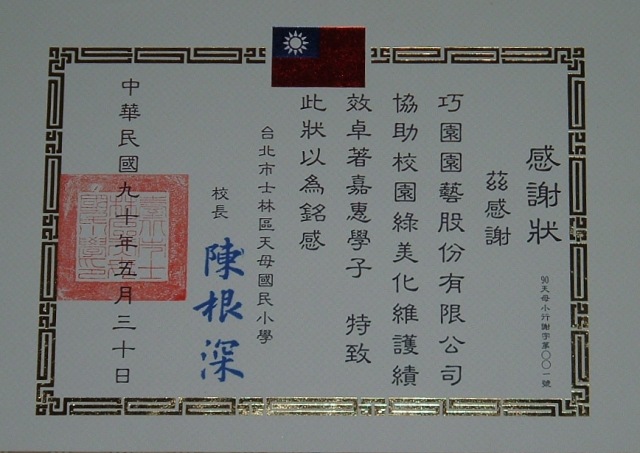 感謝狀
90天母小行謝字第〇〇一號
茲感謝
巧園園藝股份有限公司
協助校園綠美化維護績
效卓著嘉惠學子 特致
此狀以為銘感
台北市士林區天母國民小學
校長
陳根深
中華民國九十年五月三十日